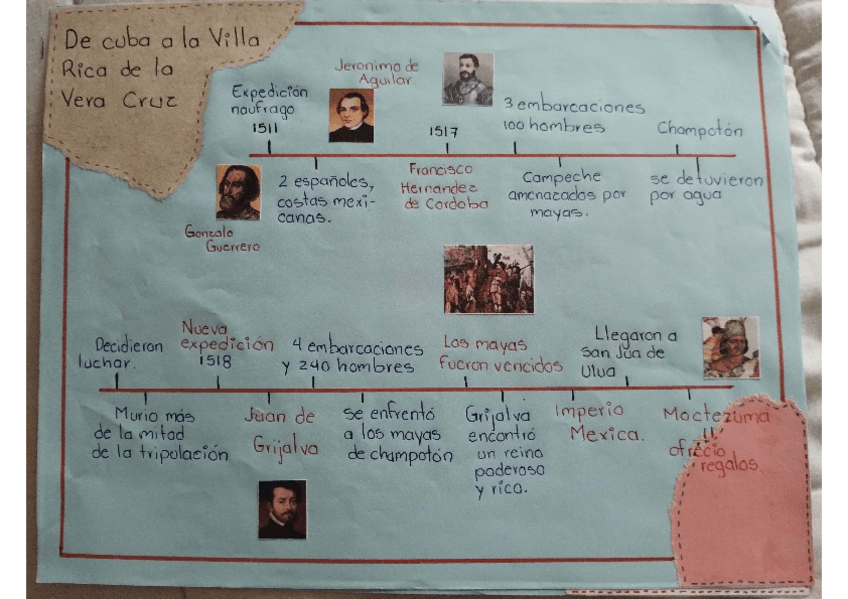 De cuba a la Villa
Rica de la
Vera Cruz
Expedición
naufrago
1511
Jeronimo de
Aguilar
1517
3 embarcaciones
100 hombres
Champotón
Gonzalo
Guerrero
2 españoles,
costas mexi-
canas.
Francisco
Hernandez
de Cordoba
Campeche
amenazados por
mayas.
se detuvieron
por agua
Decidieron
luchar.
Nueva
expedición
1518
4 embarcaciones
y 240 hombres
Los mayas
fueron vencidos
Llegaron a
san Jua de
Ulua
Murio más
de la mitad
de la tripulación
Juan de
Grijalva
se enfrentó
a los mayas
de champotón
Grijalva
encontró
un reino
poderoso
y rico.
Imperio
Mexica.
Moctezuma
ofrecio
regalos